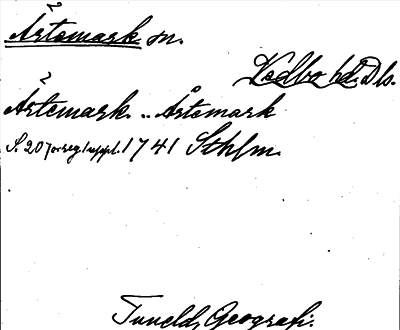 Ärtemark sn.
Vedbo hd. Dls.
Ärtemark .. Årtemark
S. 20 1 uppl. 1741 Sthlm.
Tunelds Geografi.